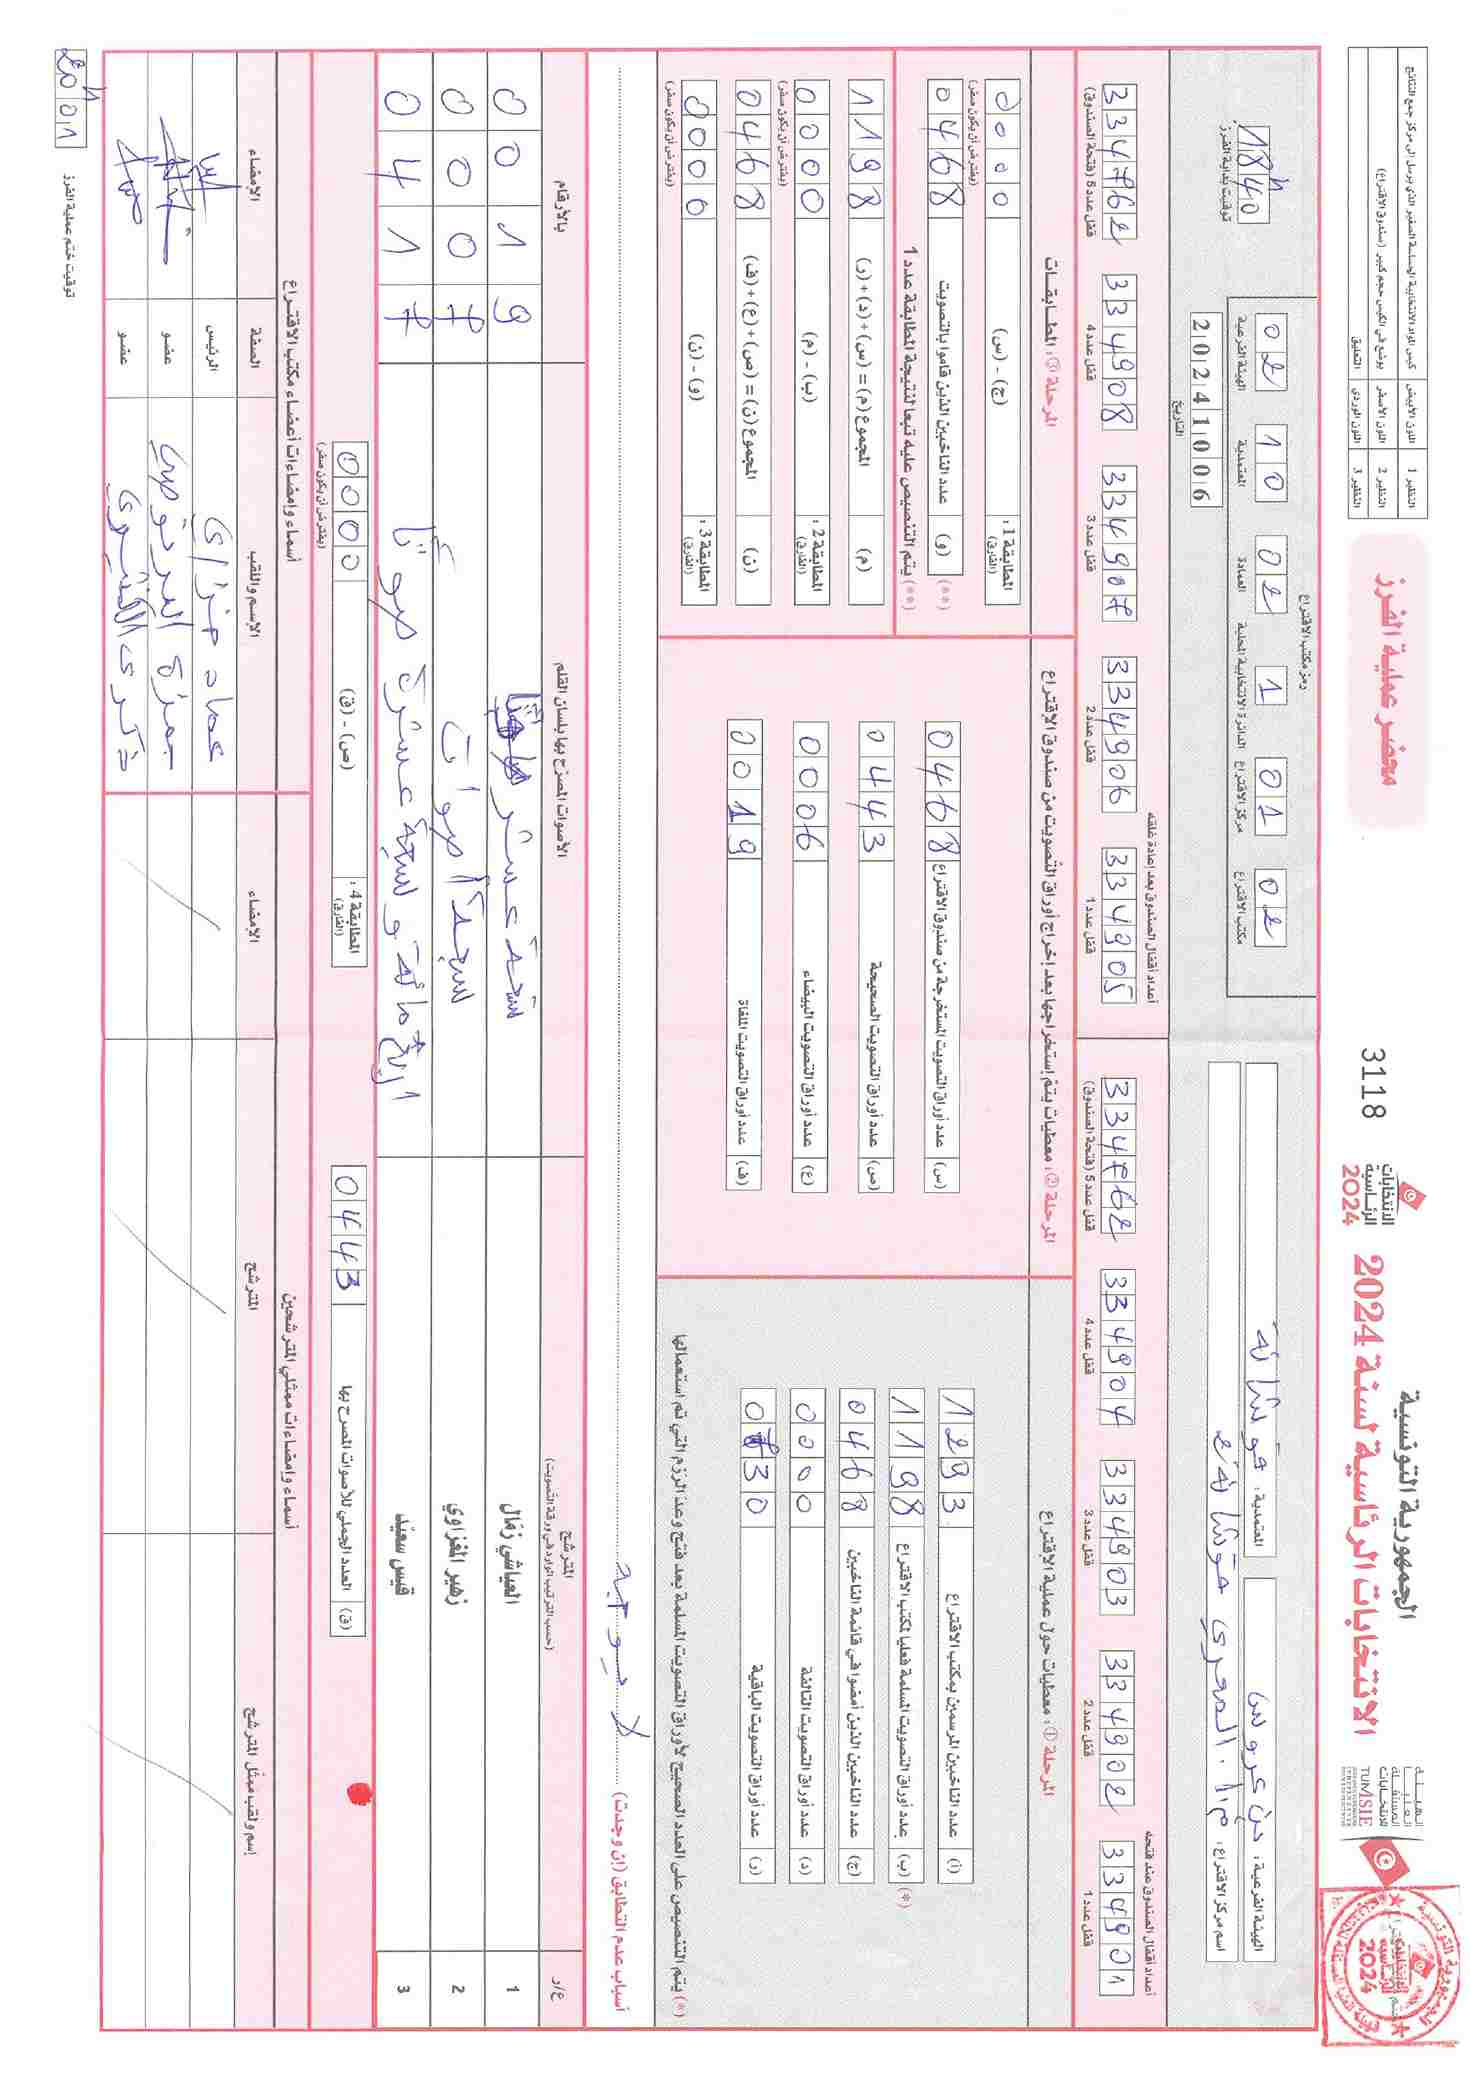 الجمهورية التونسية
الانتخابات الرئاسية لسنة 2024
الانتخابات
الرئاسية
2024
3118
محضر عملية الفرز
النظير 1 اللون الأبيض كيس المواد الانتخابية الحساسة الصغير الذي يرسل إلى مركز جمع النتائج
النظير 2 اللون الأصفر يوضع في الكيس حجم كبير (صندوق الاقتراع)
النظير 3 اللون الوردي التعليق
الهيئة الفرعية : بن عروس
المعتمدية : فوشانة
اسم مركز الاقتراع :
رمز مكتب الاقتراع
02 10 02 1 01 02
الهيئة الفرعية المعتمدية العمادة الدائرة الانتخابية المحلية مركز الاقتراع مكتب الاقتراع
20241006
التاريخ
18h40
توقيت بداية الفرز
أعداد أقفال الصندوق عند فتحه
334901 334902 334903 334904 334762
قفل عدد 1 قفل عدد 2 قفل عدد 3 قفل عدد 4 قفل عدد 5 (فتحة الصندوق)
أعداد أقفال الصندوق بعد إعادة غلقه
334905 334906 334907 334908 334762
قفل عدد 1 قفل عدد 2 قفل عدد 3 قفل عدد 4 قفل عدد 5 (فتحة الصندوق)
المرحلة ① : معطيات حول عملية الاقتراع
(أ) عدد الناخبين المرسمين بمكتب الاقتراع 1293
(ب) عدد أوراق التصويت المسلمة فعليا لمكتب الاقتراع 1198 (*)
(ج) عدد الناخبين الذين أمضوا في قائمة الناخبين 0468
(د) عدد أوراق التصويت التالفة 0000
(ر) عدد أوراق التصويت الباقية 0730
(*) يتم التنصيص على العدد الصحيح لأوراق التصويت المسلمة بعد فتح وعد الرزم التي تم استعمالها
المرحلة ② : معطيات يتم إستخراجها بعد إخراج أوراق التصويت من صندوق الاقتراع
(س) عدد أوراق التصويت المستخرجة من صندوق الاقتراع 0468
(ص) عدد أوراق التصويت الصحيحة 0443
(ع) عدد أوراق التصويت البيضاء 0006
(ف) عدد أوراق التصويت الملغاة 0019
المرحلة ③ : المطابقات
المطابقة 1 : (الفارق) (ج) - (س) 0000 (يفترض أن يكون صفر)
(**) (و) عدد الناخبين الذين قاموا بالتصويت 0468
(**) يتم التنصيص عليه تبعا لنتيجة المطابقة عدد 1
(م) المجموع (م) = (س) + (د) + (ر) 1198
المطابقة 2 : (الفارق) (ب) - (م) 0000 (يفترض أن يكون صفر)
(ن) المجموع (ن) = (ص) + (ع) + (ف) 0468
المطابقة 3 : (الفارق) (و) - (ن) 0000 (يفترض أن يكون صفر)
أسباب عدم التطابق (إن وجدت)
ع/ر المترشح (حسب الترتيب الوارد في ورقة التصويت) الأصوات المصرّح بها بلسان القلم بالأرقام
1 العياشي زمّال تسعة عشر 0019
2 زهير المغزاوي سبعة أصوات 0007
3 قيس سعيّد أربع مائة و سبعة عشرة صوتا 0417
(ق) العدد الجملي للأصوات المصرح بها 0443
المطابقة 4 : (الفارق) (ص) - (ق) 0000 (يفترض أن يكون صفر)
أسماء وإمضاءات ممثلي المترشحين
إسم ولقب ممثل المترشح المترشح الإمضاء
أسماء وإمضاءات أعضاء مكتب الاقتراع
الإسم واللقب الصفة الإمضاء
عماد الرئيس
حمزة عضو
ذكرى عضو
20h01
توقيت ختم عملية الفرز